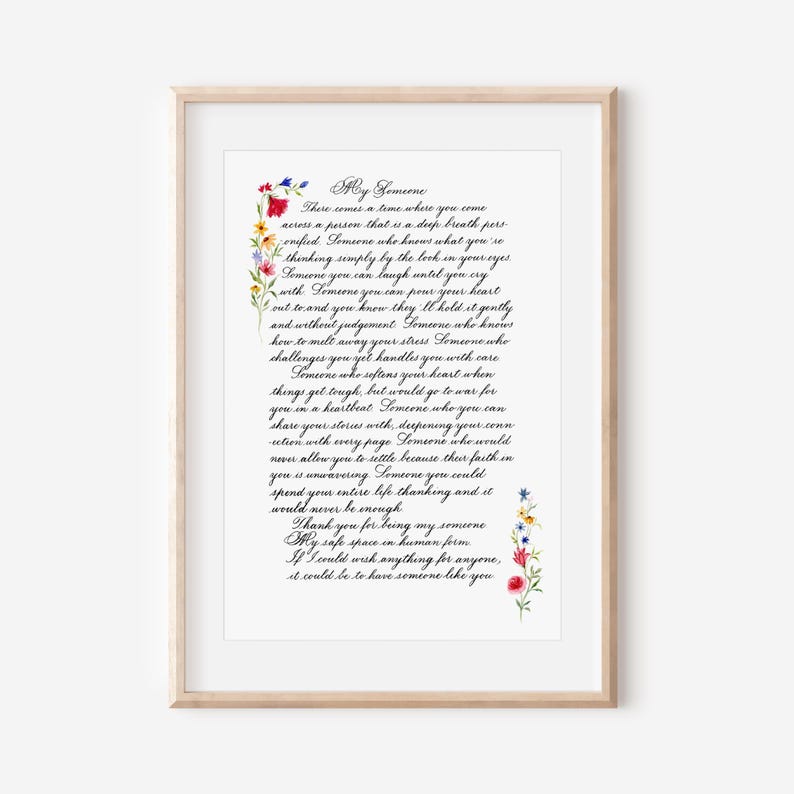 My Someone
There comes a time where you come
across a person that is a deep breath pers-
onified. Someone who knows what you're
thinking simply by the look in your eyes.
Someone you can laugh until you cry
with. Someone you can pour your heart
out to and you know they'll hold it gently
and without judgement. Someone who knows
how to melt away your stress. Someone who
challenges you yet handles you with care.
Someone who softens your heart when
things get tough, but would go to war for
you in a heartbeat. Someone who you can
share your stories with, deepening your conn
-ection with every page. Someone who would
never allow you to settle because their faith in
you is unwavering. Someone you could
spend your entire life thanking and it
would never be enough.
Thank you for being my someone
My safe space in human form.
If I could wish anything for anyone,
it could be to have someone like you.